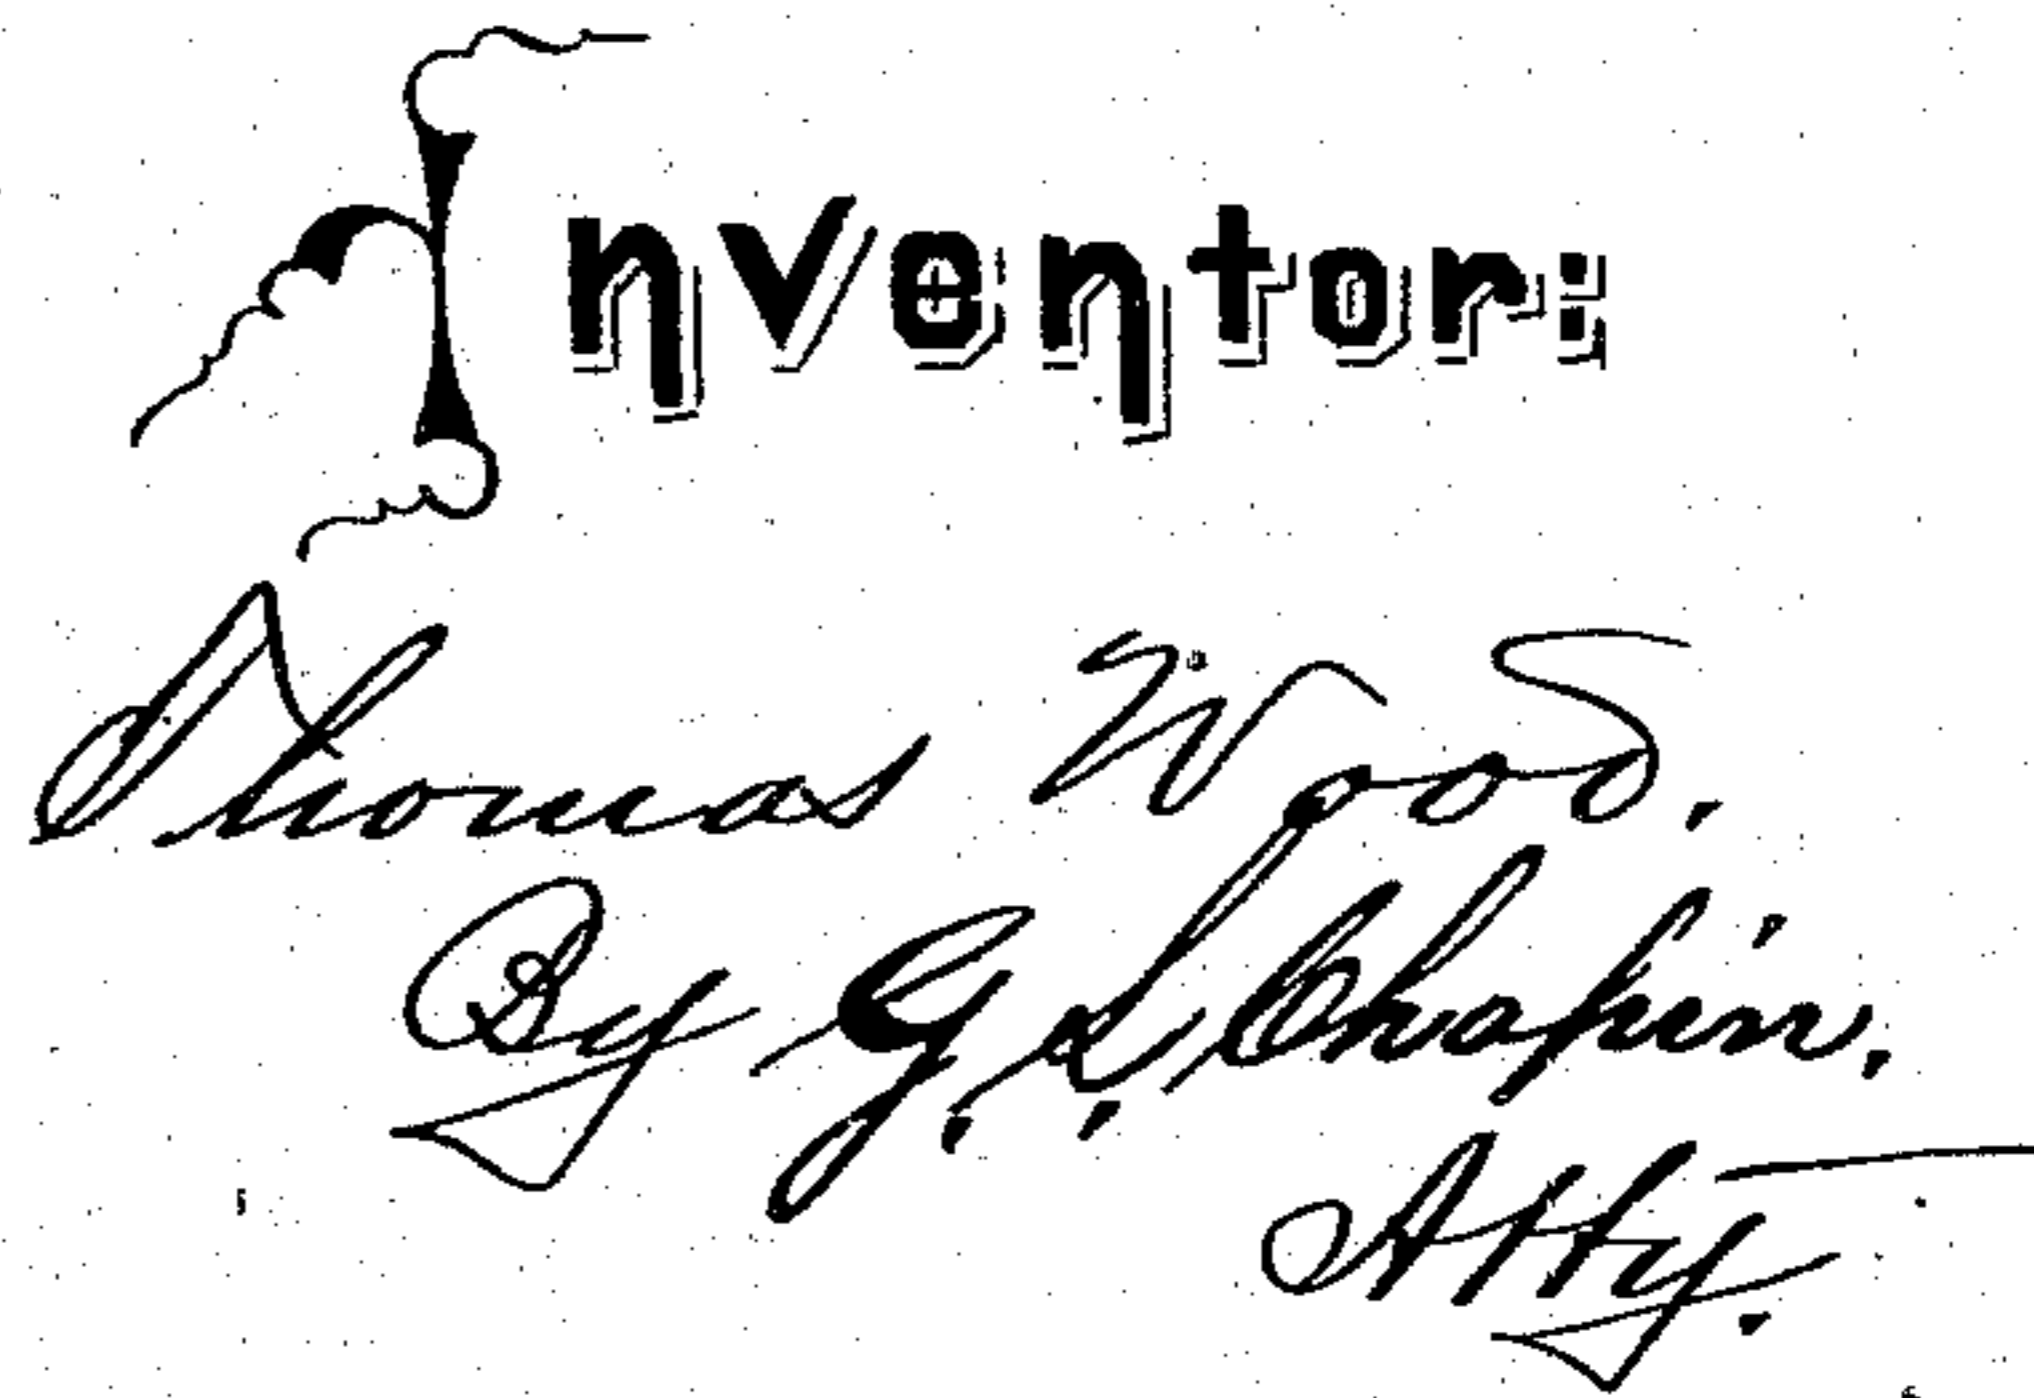 Inventor:
Thomas Wood.
By G. L. Chapin.
Atty.